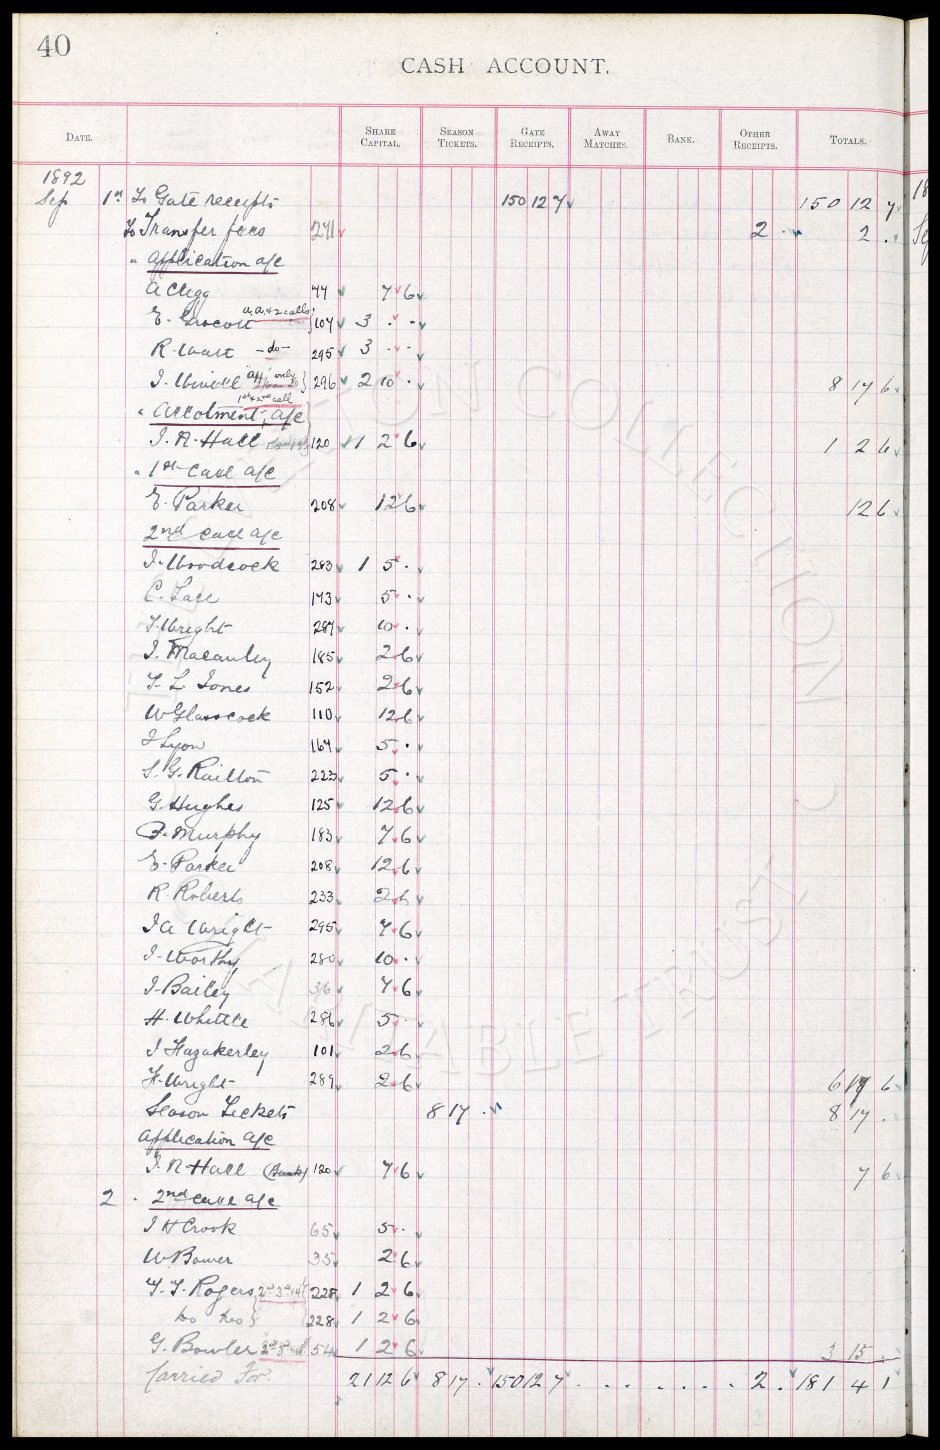 40
CASH ACCOUNT.
DATE. SHARE CAPITAL. SEASON TICKETS. GATE RECEIPTS. AWAY MATCHES. BANK. OTHER RECEIPTS. TOTALS.
1892
Sep 1st To Gate receipts 150 12 7 150 12 7
To Transfer fees 271 2 . 2 .
" Application a/c
A Clegg 44 7 6
E. Grocott a, a, & 2 calls 104 3 . .
R. Watt - do - 295 3 . .
J. App only 296 2 10 . 8 17 6
1st & 2nd call
" Allotment a/c
J. A. Hall 120 1 2 6 1 2 6
" 1st Call a/c
E. Parker 208 12 6 12 6
2nd Call a/c
J. Woodcock 283 1 5 .
C. Lace 143 5 .
T. Wright 287 10 .
J. Macauley 185 2 6
T. L. Jones 152 2 6
W Glasscock 110 12 6
J Lyon 164 5 .
S. G. Railton 223 5 .
G. Hughes 125 12 6
P. Murphy 183 7 6
E. Parker 208 12 6
R Roberts 233 2 6
J A Wright 295 7 6
J. Worthy 280 10 .
J. Bailey 316 7 6
H. Whittle 286 5 .
J Hazakerley 101 2 6
H. Wright 289 2 6 6 17 6
Season Tickets 8 17 . 8 17 .
Application a/c
J. A. Hall (Bank) 120 7 6 7 6
2 . 2nd Call a/c
J H Crook 65 5 .
W. Bower 35 2 6
T. T. Rogers 228 1 2 6
Do Do 228 1 2 6
G. Bowler 54 1 2 6 3 15 .
Carried For. 21 12 6 8 17 . 150 12 7 . . . . . . . 2 . 181 4 1
COLLECTION
CHARITABLE TRUST